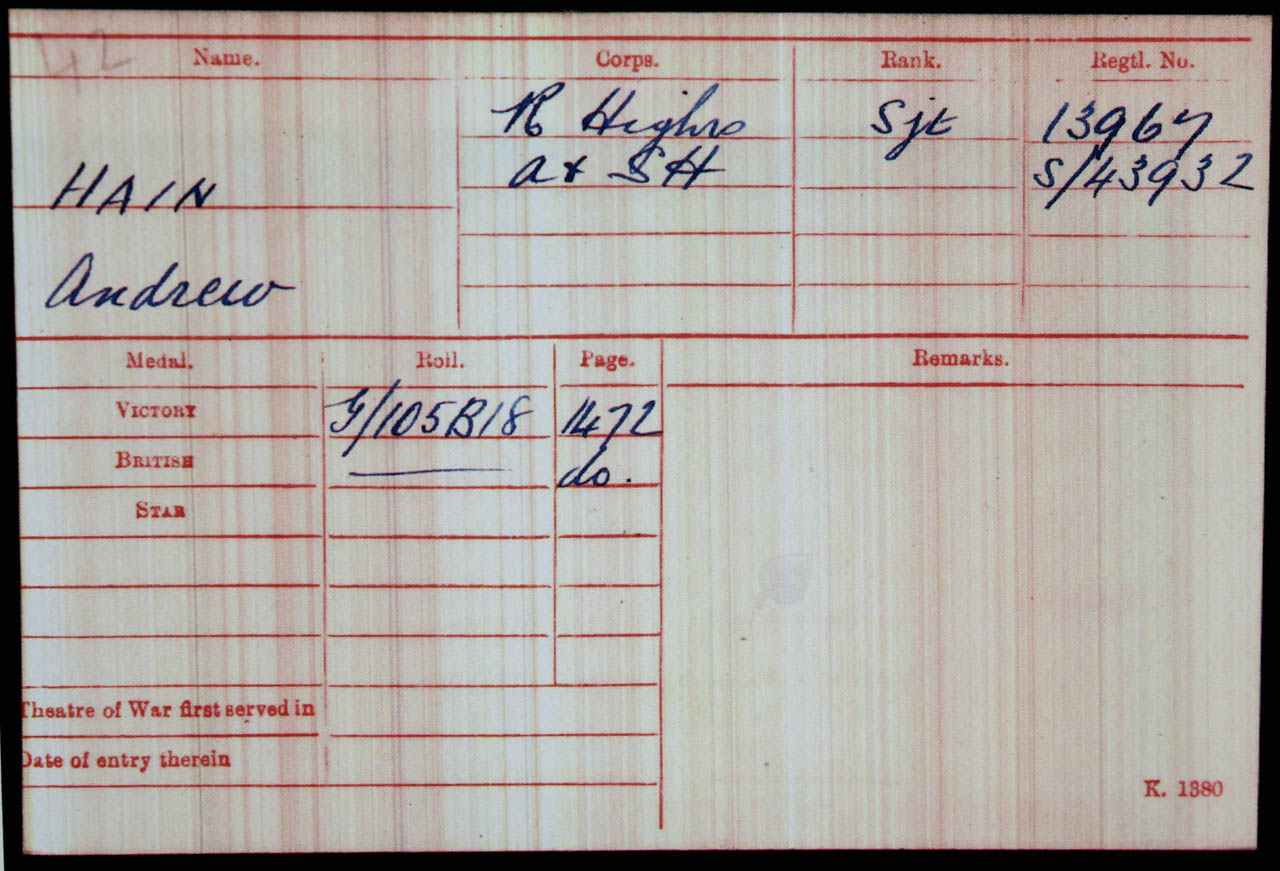 42
Name. Corps. Rank. Regtl. No.
R Highrs Sjt 13967
A & SH S/43932
HAIN
Andrew
Medal. Roll. Page. Remarks.
VICTORY G/105B18 1472
BRITISH do.
STAR
Theatre of War first served in
Date of entry therein
K. 1380